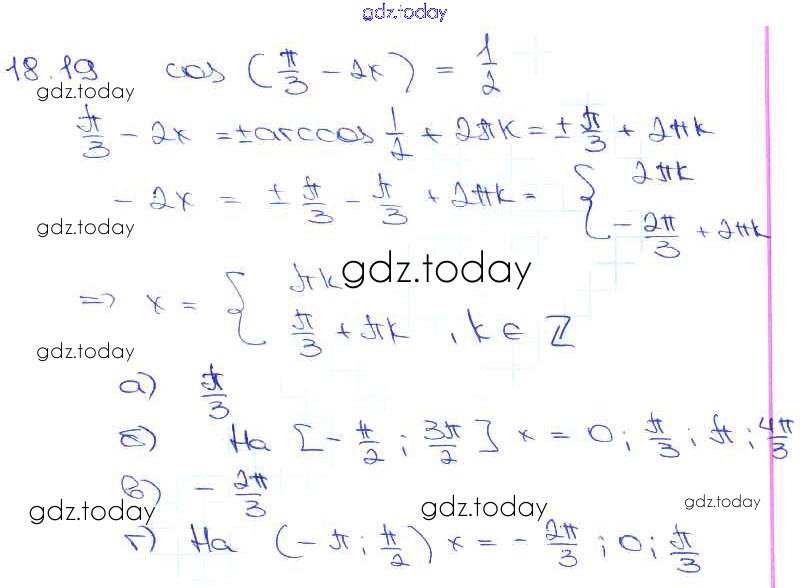 gdz.today
18.19 cos (π/3 - 2x) = 1/2
gdz.today
π/3 - 2x = ± arccos 1/2 + 2πk = ± π/3 + 2πk
- 2x = ± π/3 - π/3 + 2πk = { 2πk
- 2π/3 + 2πk
gdz.today
gdz.today
=> x = { πk
π/3 + πk , k ∈ Z
gdz.today
а) π/3
б) На [- π/2 ; 3π/2] x = 0 ; π/3 ; π ; 4π/3
в) - 2π/3
gdz.today gdz.today gdz.today
г) На (- π ; π/2) x = - 2π/3 ; 0 ; π/3